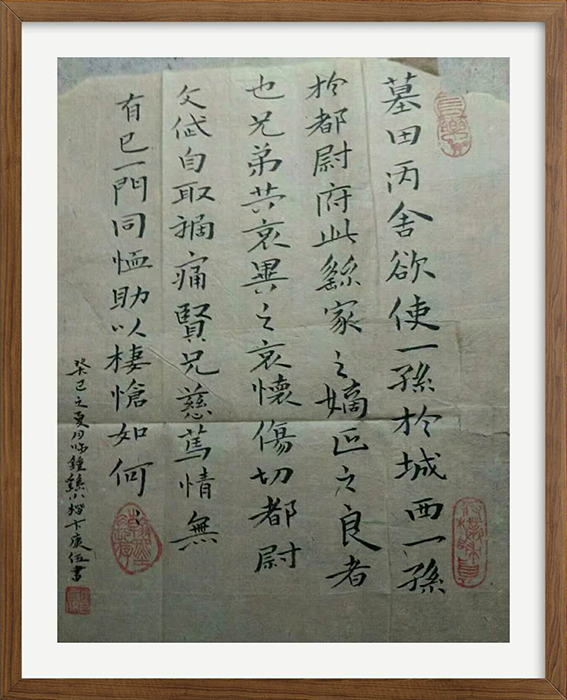 墓田丙舍欲使一孫扵城西一孫
扵都尉府此繇家之嫡正之良者
也兄弟共哀異之哀懷傷切都尉
文岱自取禍痛賢兄慈篤情無
有已一門同恤助以棲愴如何〻
癸巳之夏月臨鍾繇小楷卞庚伍書